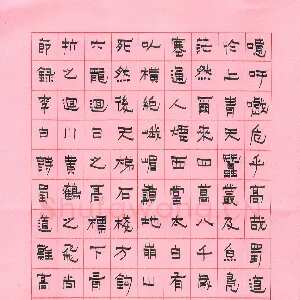 噫吁戲危乎高哉蜀道
於上青天蠶叢及魚鳧
茫然爾來四萬八千歲
塞通人煙西當太白有
以橫絕峨眉巔地崩山
死然後天梯石棧方鉤
六龍迴日之高標下有
折之迴川黃鶴之飛尚
節錄李白詩蜀道難高